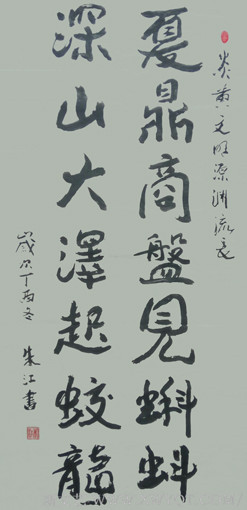 炎黄文明源渊流長
夏鼎商盤見蝌蚪
深山大澤起蛟龍
歲次丁酉冬
朱江書